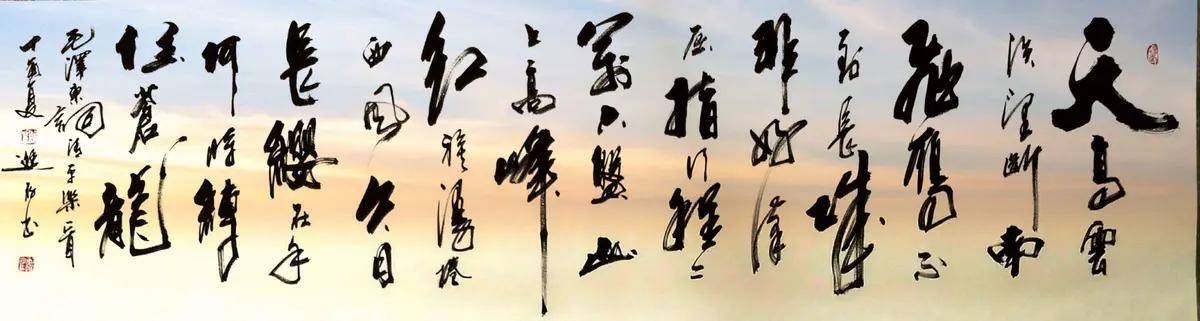 天高雲
淡望斷南
飛雁不
到長城
非好漢
屈指行程二
萬六盤山
上高峰
紅旗漫捲
西風今日
長纓在手
何時縛
住蒼龍
毛澤東詞清平樂
丁酉夏